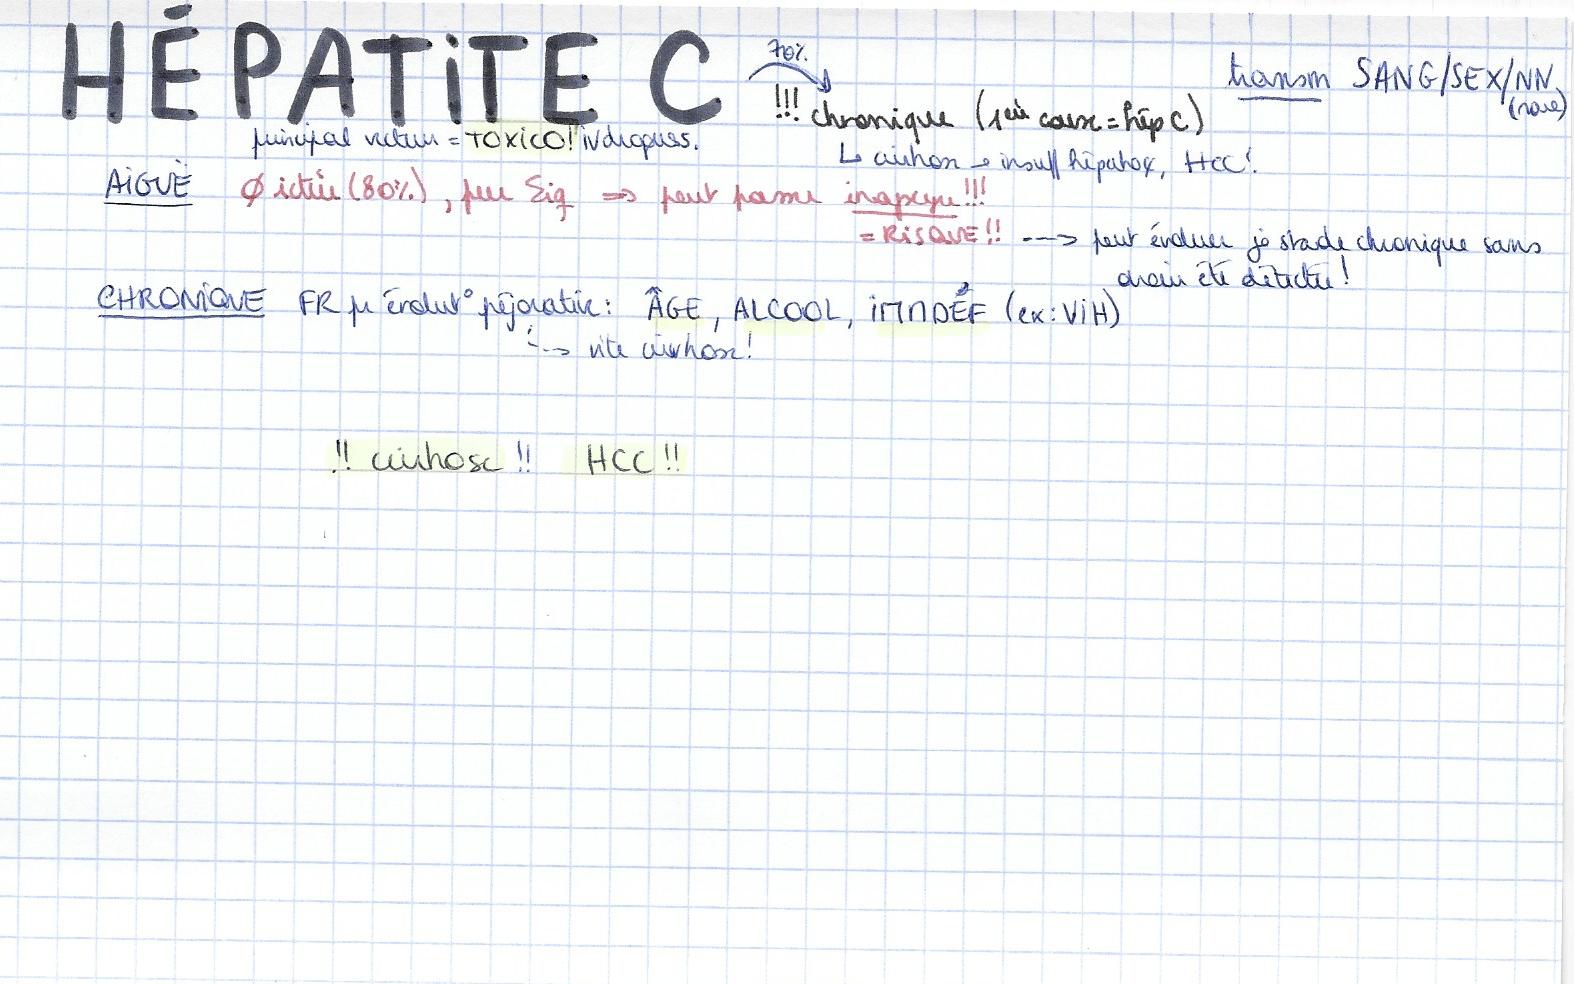 HÉPATiTE C
70%
!!! chronique (1ère cause = hép C)
transm SANG/SEX/NN
(rare)
principal vecteur = TOXICO! IV drogues.
↳ cirrhose → insuff hépatox, HCC!
AiGUË ∅ ictère (80%), peu Σiq => peut passer inaperçu!!!
= RiSQUE!! ---> peut évoluer jq stade chronique sans
avoir été détectée!
CHRONiQUE FR pr évolut° péjorative: ÂGE, ALCOOL, iMMDÉF (ex: ViH)
---> vite cirrhose!
!! cirrhose !! HCC !!